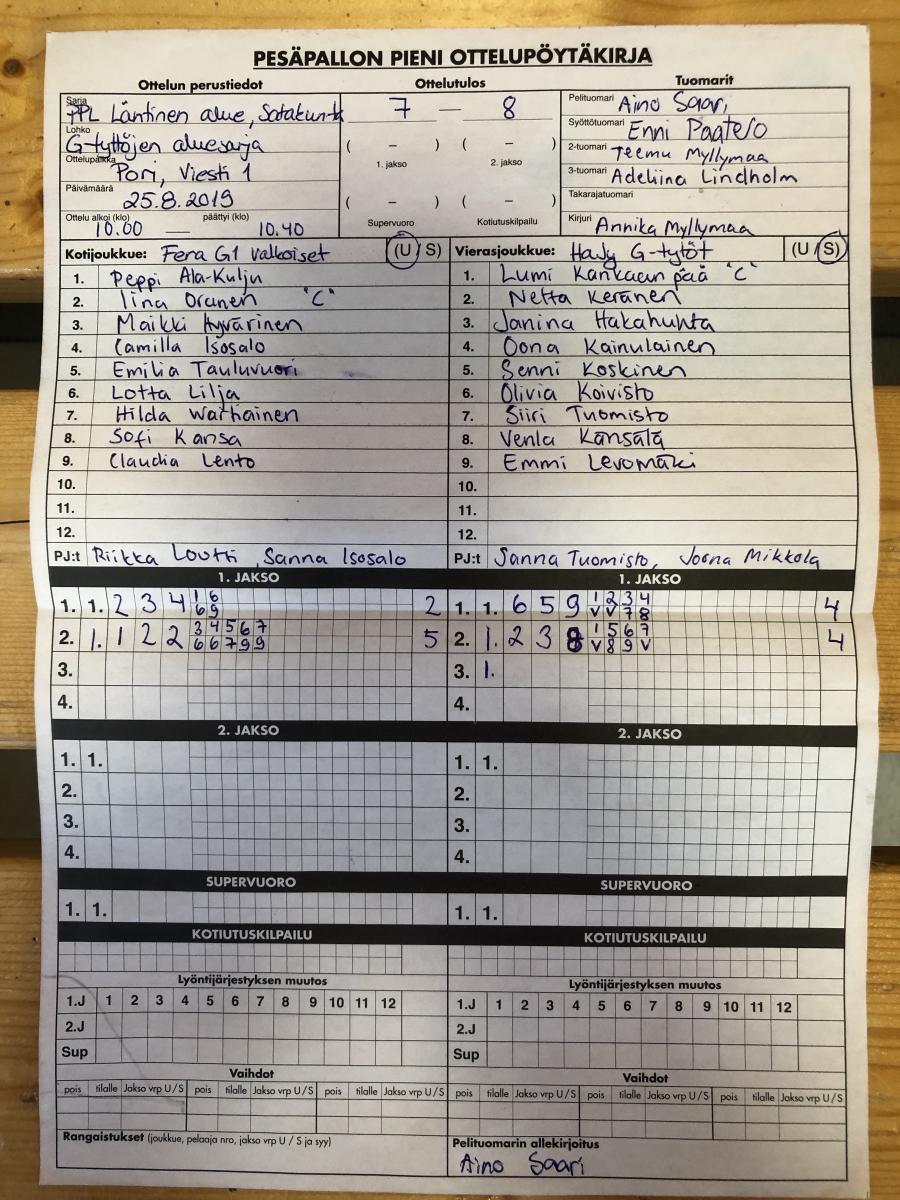 PESÄPALLON PIENI OTTELUPÖYTÄKIRJA
Ottelun perustiedot Ottelutulos Tuomarit
Sarja PPL Läntinen alue, Satakunta
Lohko G-tyttöjen aluesarja
Ottelupaikka Pori, Viesti 1
Päivämäärä 25.8.2019
Ottelu alkoi (klo) päättyi (klo)
10.00 — 10.40
7 — 8
( – ) ( – )
1. jakso 2. jakso
( – ) ( – )
Supervuoro Kotiutuskilpailu
Pelituomari Aino Saari
Syöttötuomari Enni Paatelo
2-tuomari Teemu Myllymaa
3-tuomari Adeliina Lindholm
Takarajatuomari
Kirjuri Annika Myllymaa
Kotijoukkue: Fera G1 valkoiset (U / S)
1. Peppi Ala-Kulju
2. Iina Oranen "C"
3. Maikki Hyvärinen
4. Camilla Isosalo
5. Emilia Tauluvuori
6. Lotta Lilja
7. Hilda Waihainen
8. Sofi Kansa
9. Claudia Lento
10.
11.
12.
PJ:t Riikka Loutti, Sanna Isosalo
Vierasjoukkue: HaJy G-tytöt (U / S)
1. Lumi Kankaanpää "C"
2. Netta Keränen
3. Janina Hakahuhta
4. Oona Kainulainen
5. Senni Koskinen
6. Olivia Koivisto
7. Siiri Tuomisto
8. Venla Kansala
9. Emmi Levomäki
10.
11.
12.
PJ:t Sanna Tuomisto, Joona Mikkola
1. JAKSO
1. 1. 2 3 4 1 6 2
6 9
2. 1. 1 2 2 3 4 5 6 7 5
6 6 7 9 9
3.
4.
1. JAKSO
1. 1. 6 5 9 1 2 3 4 4
V V 7 8
2. 1. 2 3 8 1 5 6 7 4
V 8 9 V
3. 1.
4.
2. JAKSO
1. 1.
2.
3.
4.
2. JAKSO
1. 1.
2.
3.
4.
SUPERVUORO
1. 1.
SUPERVUORO
1. 1.
KOTIUTUSKILPAILU
KOTIUTUSKILPAILU
Lyöntijärjestyksen muutos
1.J 1 2 3 4 5 6 7 8 9 10 11 12
2.J
Sup
Lyöntijärjestyksen muutos
1.J 1 2 3 4 5 6 7 8 9 10 11 12
2.J
Sup
Vaihdot
pois tilalle Jakso vrp U / S pois tilalle Jakso vrp U / S pois tilalle Jakso vrp U / S
Vaihdot
pois tilalle Jakso vrp U / S pois tilalle Jakso vrp U / S pois tilalle Jakso vrp U / S
Rangaistukset (joukkue, pelaaja nro, jakso vrp U / S ja syy)
Pelituomarin allekirjoitus
Aino Saari